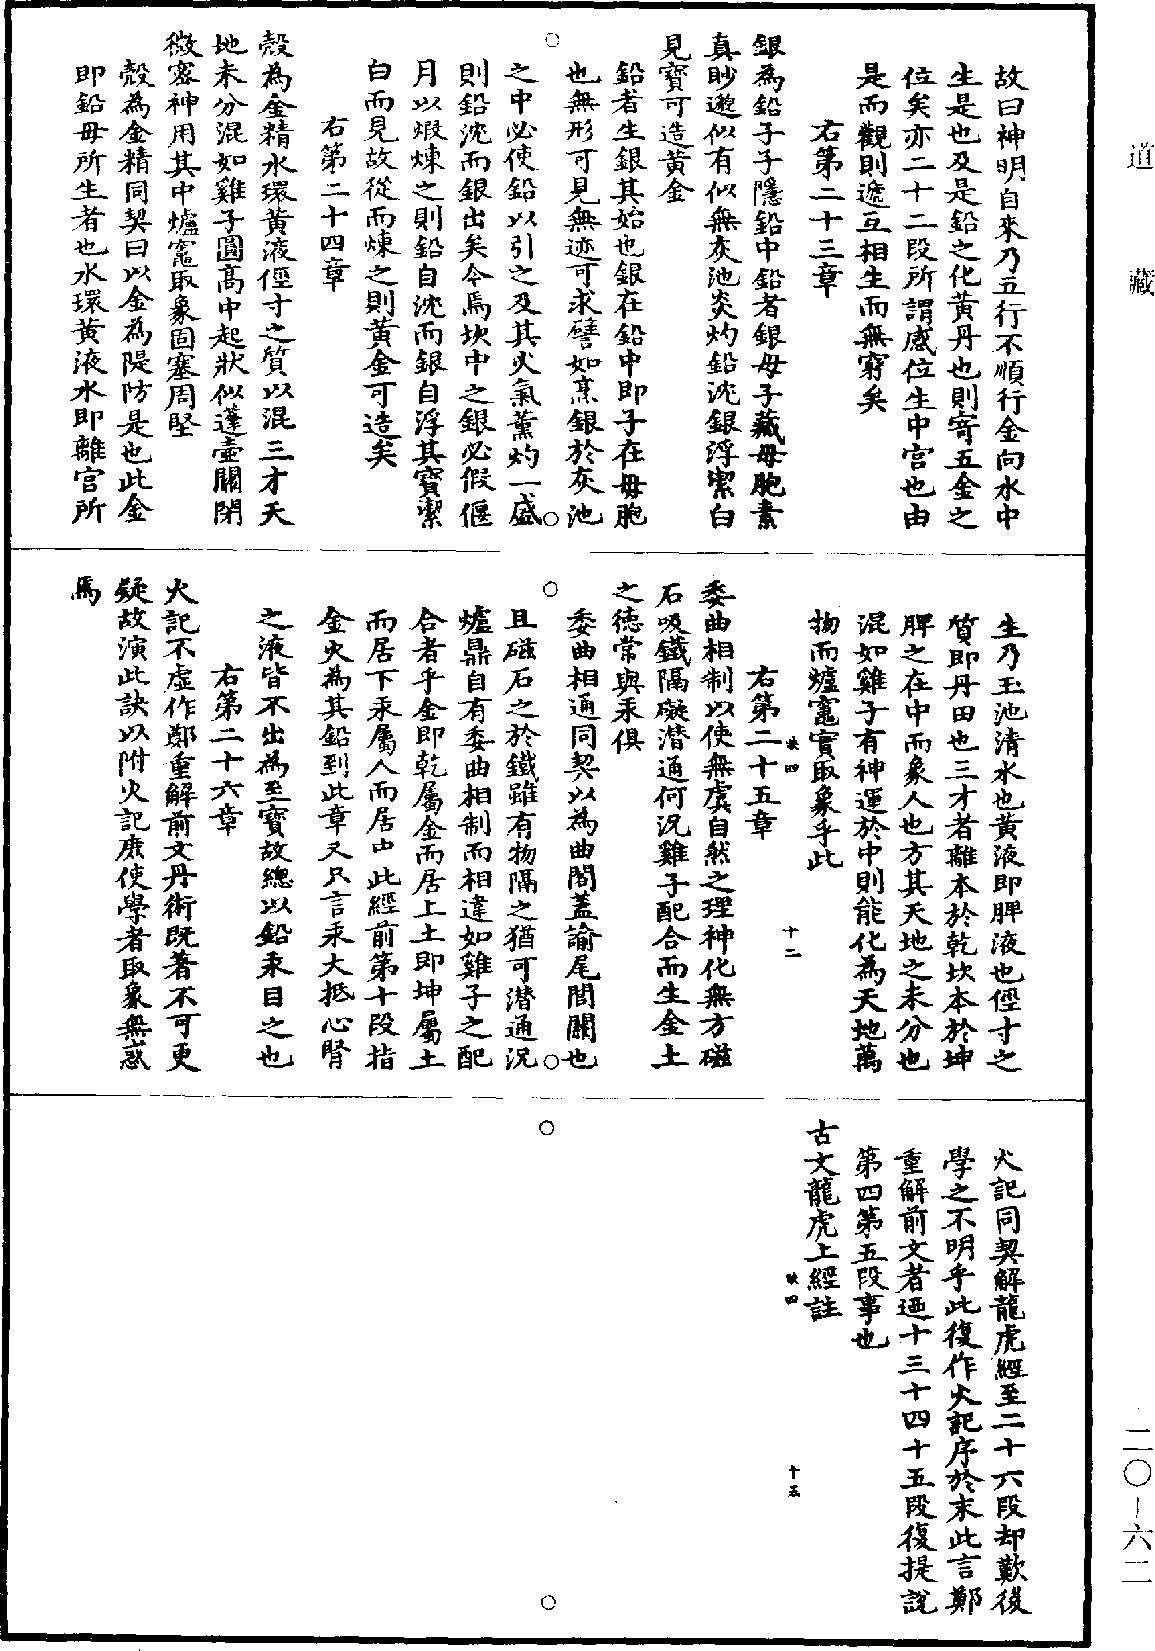 道藏
故曰神明自來乃五行不順行金向水中
生是也及是鉛之化黃丹也則寄五金之
位矣亦二十二段所謂感位生中宫也由
是而觀則遞互相生而無窮矣
右第二十三章
銀為鉛子子隱鉛中鉛者銀母子藏母胞素
真眇邈似有似無灰池炎灼鉛沈銀浮潔白
見寶可造黃金
鉛者生銀其始也銀在鉛中即子在母胞
也無形可見無迹可求譬如烹銀於灰池
之中必使鉛以引之及其火氣薰灼一盛
則鉛沈而銀出矣今焉坎中之銀必假偃
月以煅煉之則鉛自沈而銀自浮其寶潔
白而見故從而煉之則黃金可造矣
右第二十四章
殼為金精水環黃液徑寸之質以混三才天
地未分混如雞子圓高中起狀似蓬壺關閉
微密神用其中爐竈取象固塞周堅
殼為金精同契曰以金為隄防是也此金
即鉛母所生者也水環黃液水即離宮所
生乃玉池清水也黃液即脾液也徑寸之
質即丹田也三才者離本於乾坎本於坤
脾之在中而象人也方其天地之未分也
混如雞子有神運於中則能化為天地萬
物而爐竈實取象乎此
右第二十五章
映四
十二
委曲相制以使無虞自然之理神化無方磁
石吸鐵隔礙潛通何況雞子配合而生金土
之德常與汞俱
委曲相通同契以為曲閣蓋諭尾閭關也
且磁石之於鐵雖有物隔之猶可潛通況
爐鼎自有委曲相制而相違如雞子之配
合者乎金即乾屬金而居上土即坤屬土
而居下汞屬人而居中此經前第十段指
金火為其鉛到此章又只言汞大抵心腎
之液皆不出為至寶故總以鉛汞目之也
右第二十六章
火記不虛作鄭重解前文丹術既著不可更
疑故演此訣以附火記庶使學者取象無惑
焉
火記同契解龍虎經至二十六段却歎後
學之不明乎此復作火記序於末此言鄭
重解前文者迺十三十四十五段復提說
第四第五段事也
古文龍虎上經註
映四
十五
二〇-六二